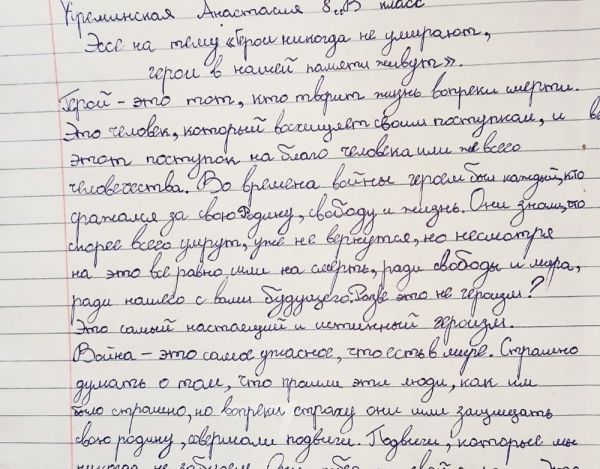 Укреминская Анастасия 8„В" класс
Эссе на тему «Герои никогда не умирают,
герои в нашей памяти живут».
Герой – это тот, кто творит жизнь вопреки смерти.
Это человек, который восхищяет своим поступкам, и
этот поступок на благо человека или же всего
человечества. Во времена войны героем был каждый, кто
сражался за свою Родину, свободу и жизнь. Они знали, что
скорее всего умрут, уже не вернутся, но несмотря
на это всё равно шли на смерть, ради свободы и мира,
ради нашего с вами будущего. Разве это не героизм?
Это самый настоящий и истинный героизм.
Война – это самое ужасное, что есть в мире. Страшно
думать о том, что прошли эти люди, как им
было страшно, но вопреки страху они шли защищать
свою родину, совершали подвиги. Подвиги, которые мы
никогда не забудем. Они